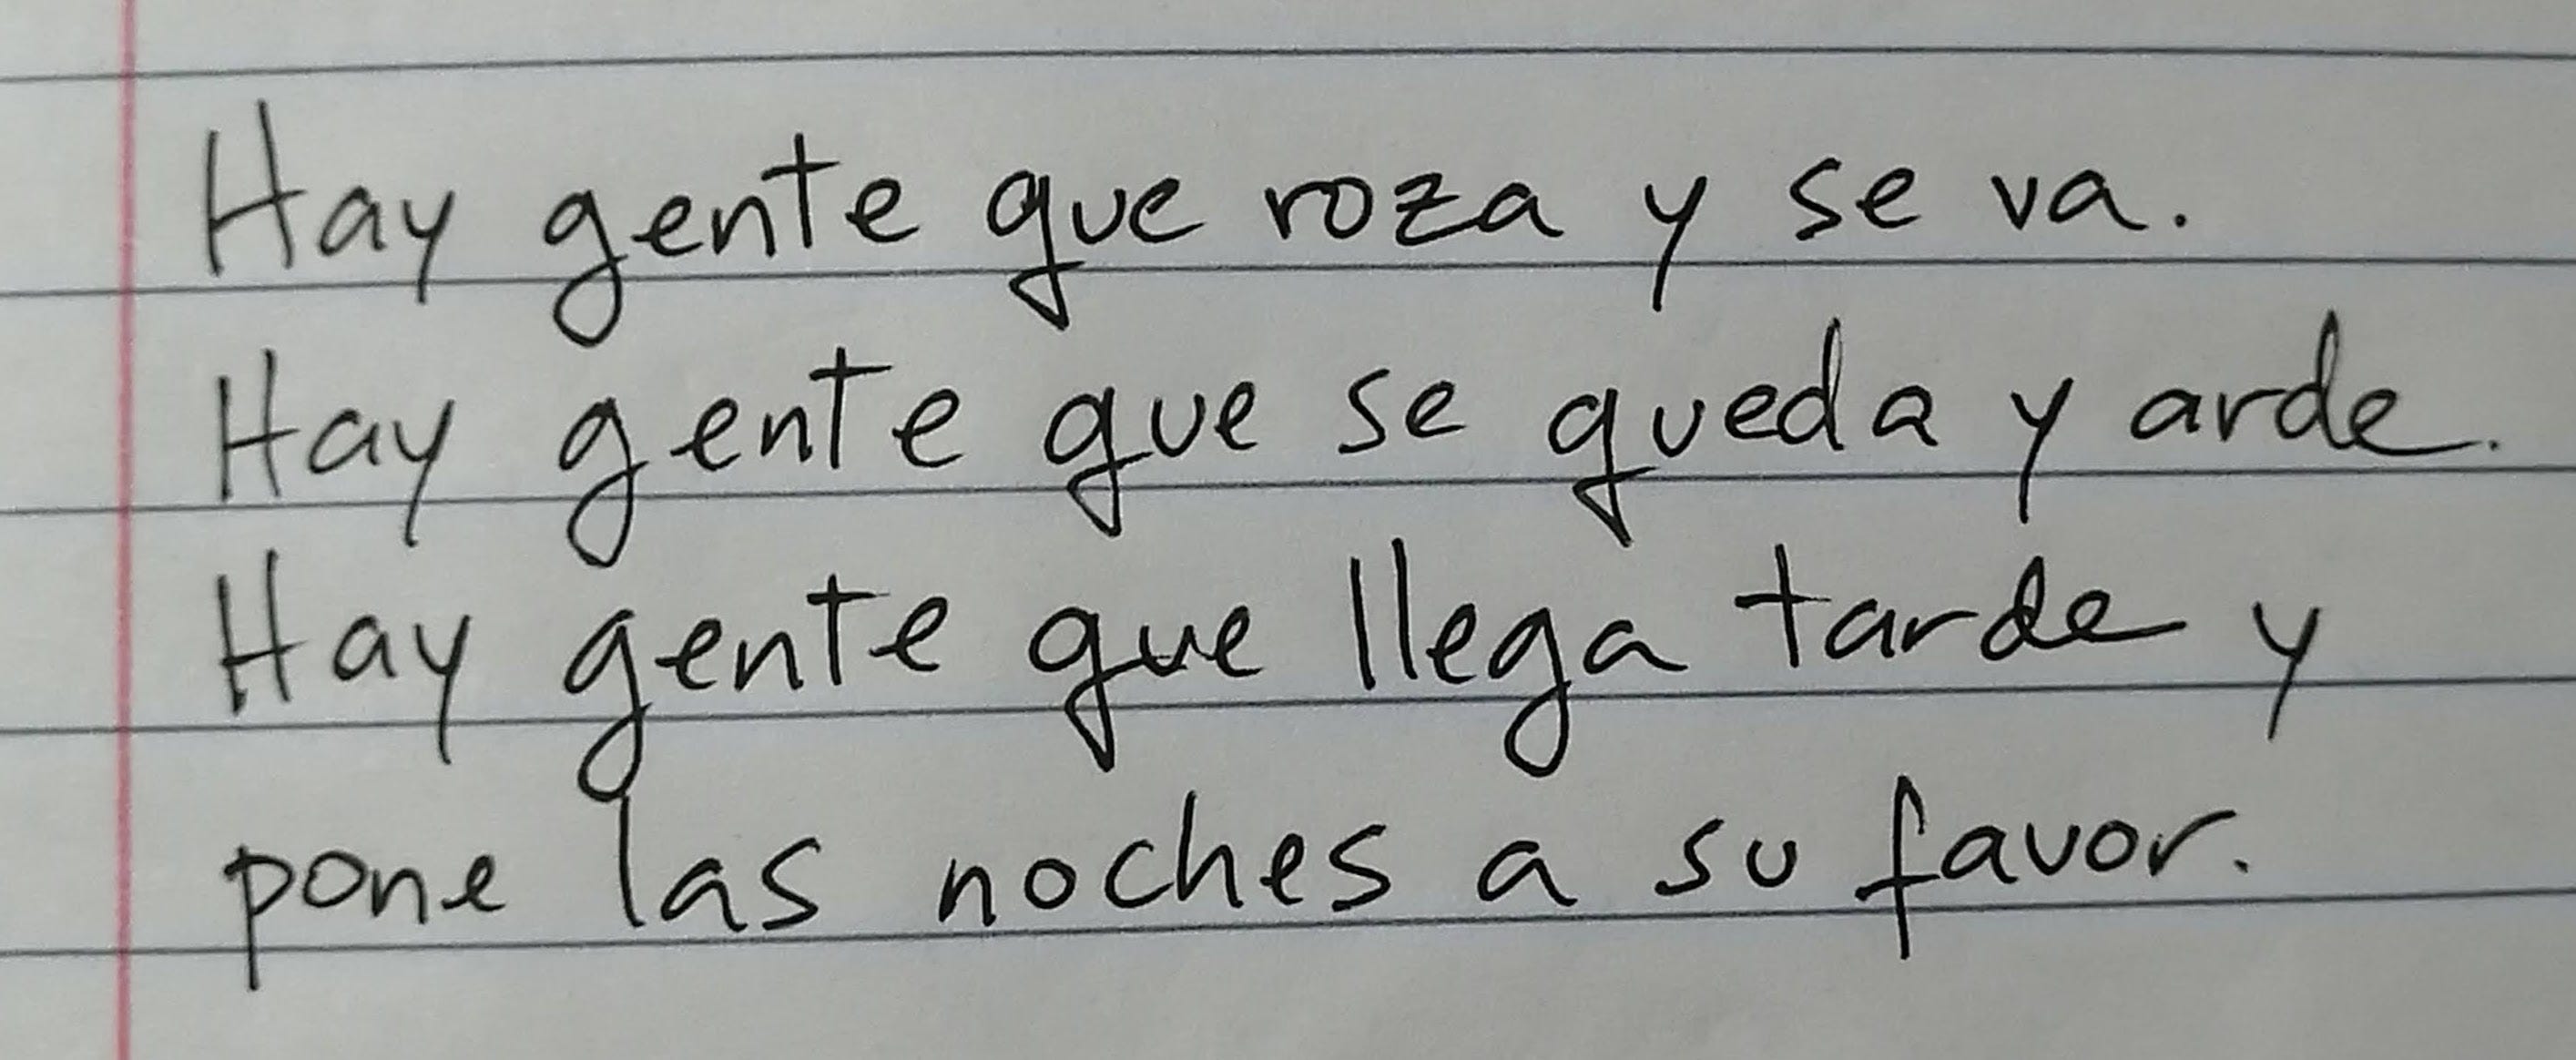 Hay gente que roza y se va.
Hay gente que se queda y arde.
Hay gente que llega tarde y
pone las noches a su favor.